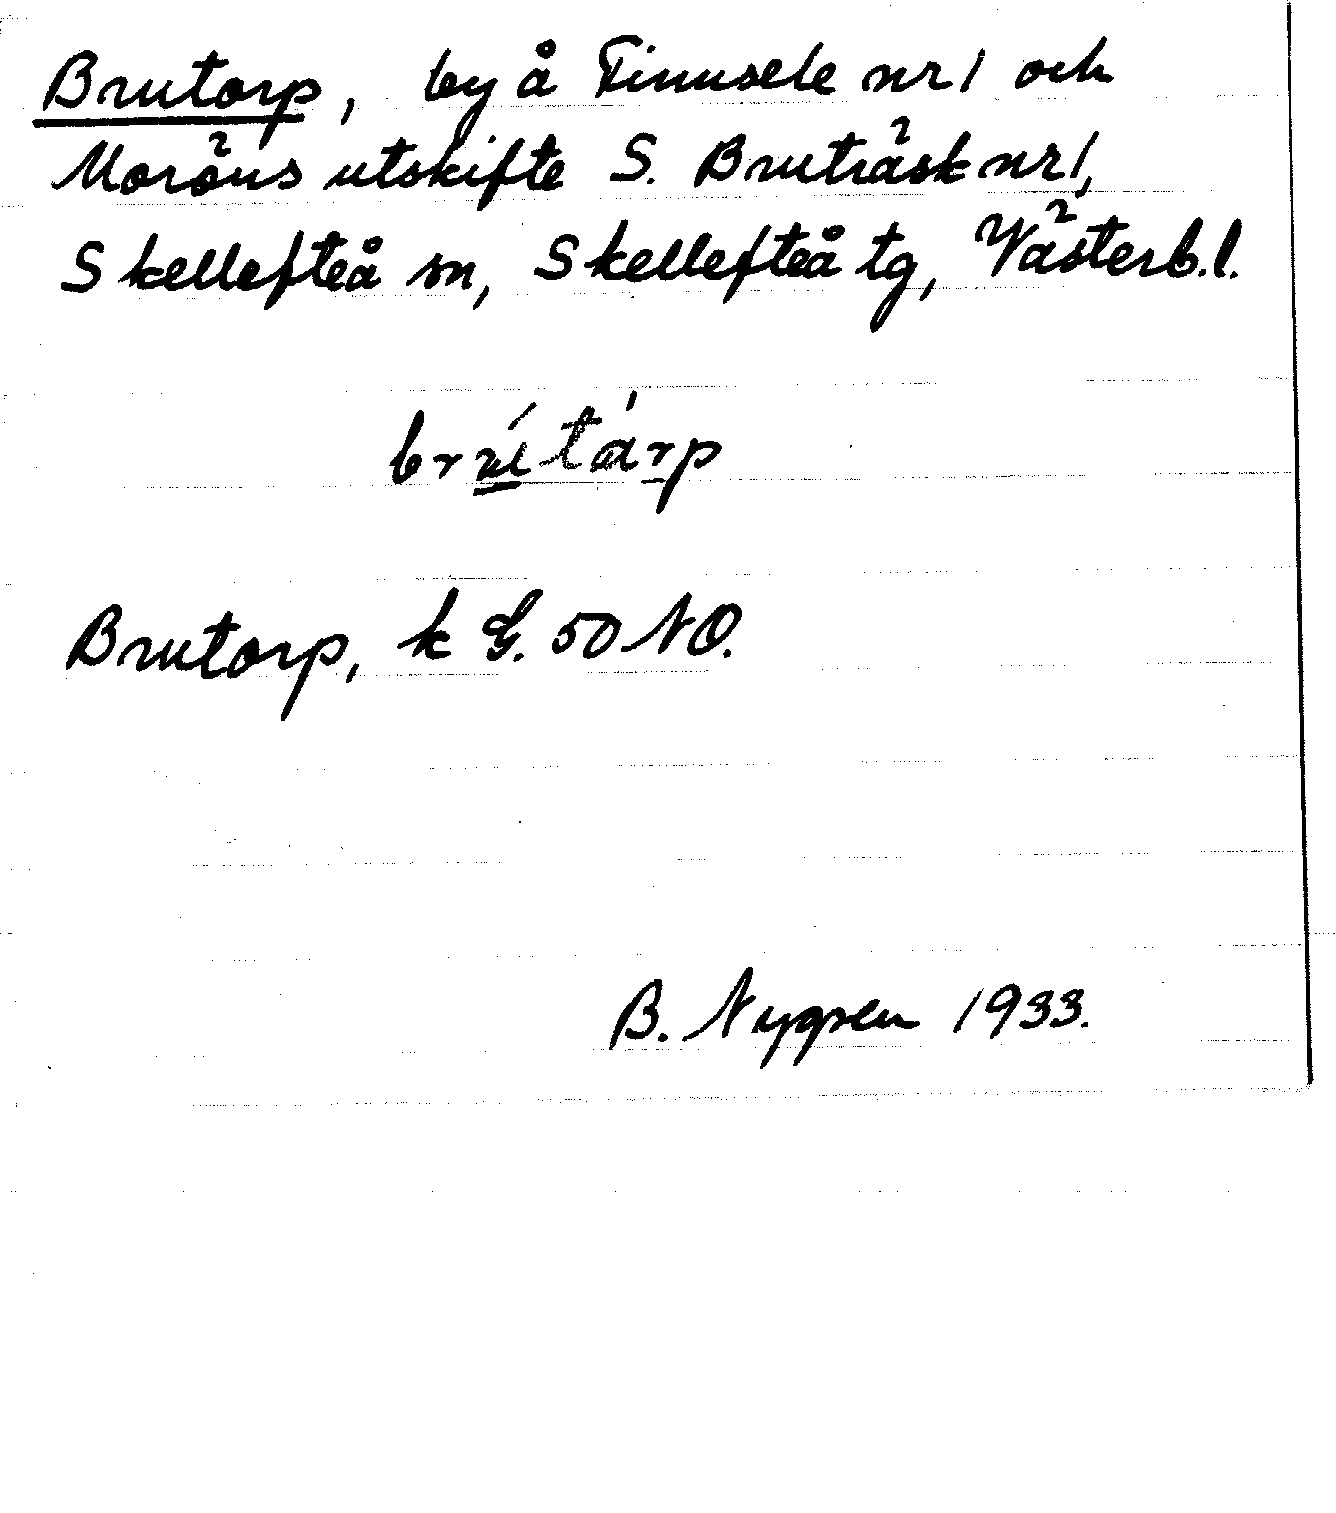 Brutorp, by å Finnsele nr 1 och
Moröns utskifte S. Bruträsk nr 1,
Skellefteå sn, Skellefteå tg, Västerb.l.
brútárp
Brutorp, k G. 50 NO.
B. Nygren 1933.